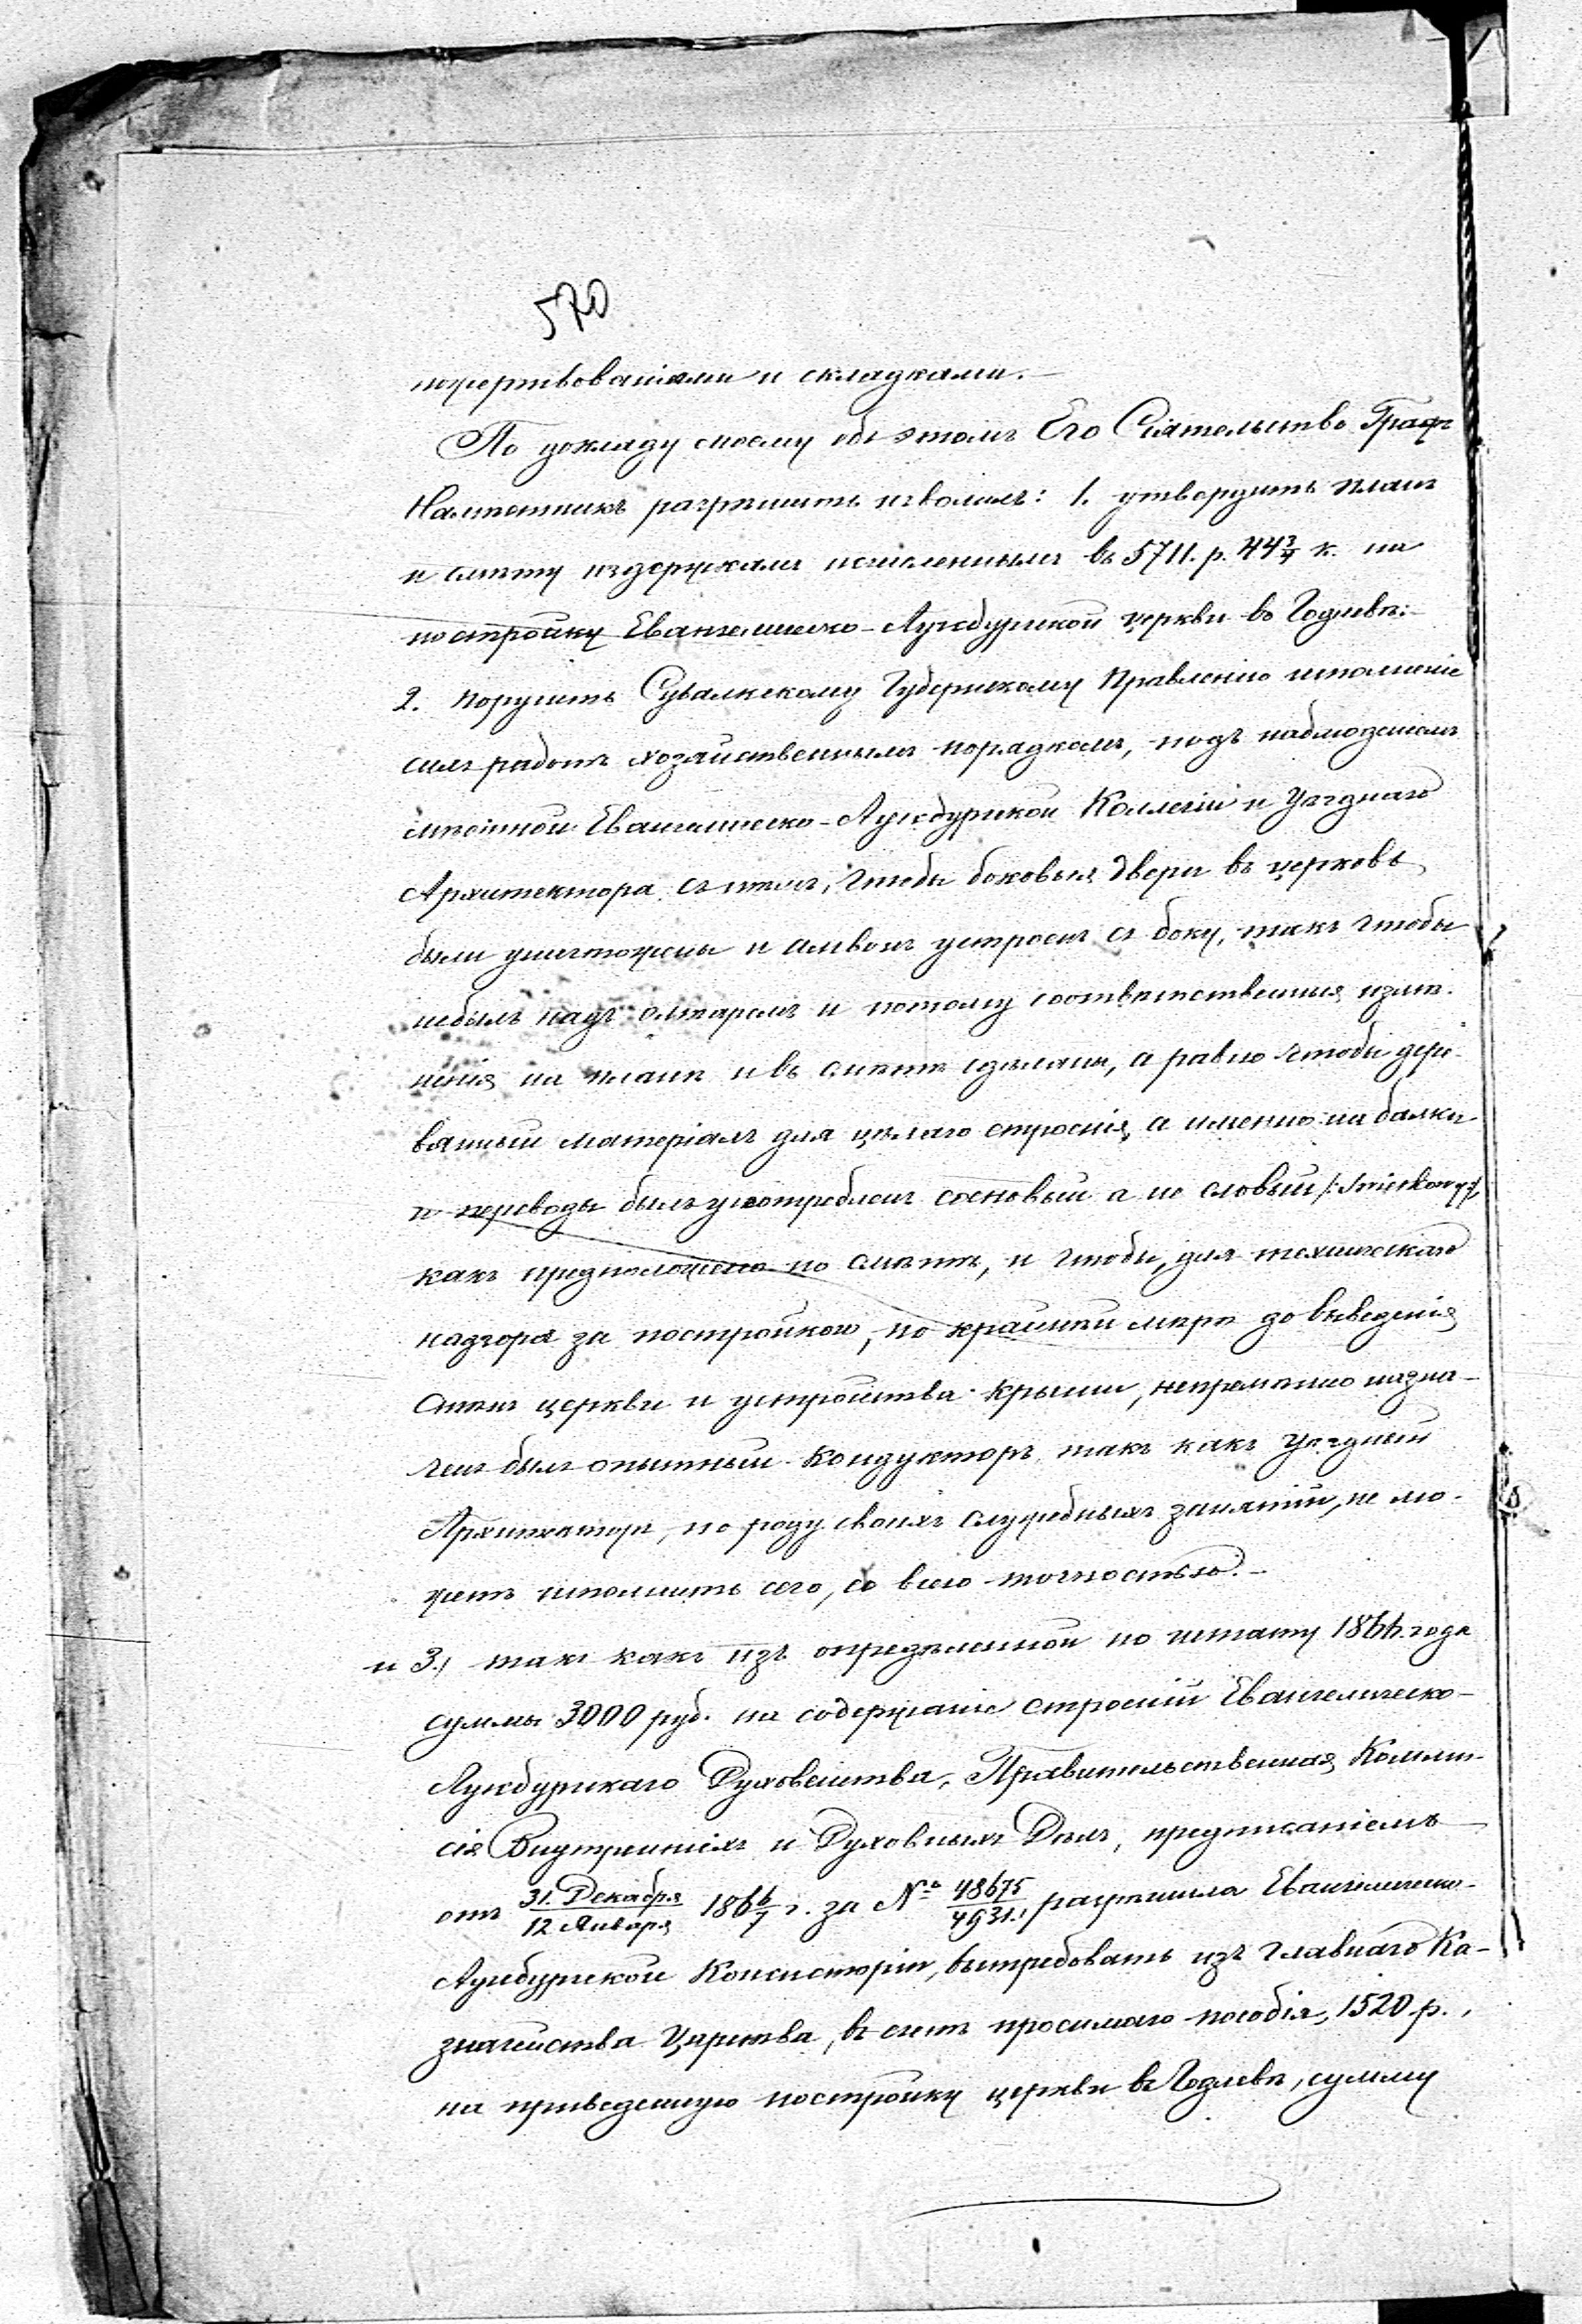 570
пожертвованіями и складками.—
По докладу моему объ этомъ Его Сіятельство Графъ
Намѣстникъ разрѣшить изволилъ: 1. утвердить планъ
и смѣту издержкамъ исчисленнымъ въ 5711. р. 44¾ к. на
постройку Евангелическо-Аугсбургской церкви въ Годлевѣ:
2. поручить Сувалкскому Губернскому Правленію исполненіе
симъ работъ хозяйственнымъ порядкомъ, подъ наблюденіемъ
мѣстной Евангелическо-Аугсбургской Коллегіи и Уѣзднаго
Архитектора съ тѣмъ, чтобы боковыя двери въ церковь
были уничтожены и амвонъ устроенъ съ боку, такъ чтобы
небылъ надъ олтаремъ и потому соотвѣтственныя измѣ-
ненія на планѣ и въ смѣтѣ сдѣланы, а равно чтобы дере-
вянный матеріалъ для цѣлаго строенія, а именно на балки
и переводы былъ употребленъ сосновый а не еловый /: Smierkowy :/,
какъ предположено по смѣтѣ, и чтобы, для техническаго
надзора за постройкою, по крайней мѣрѣ до выведенія
стѣнъ церкви и устройства крыши, непремѣнно назна-
ченъ былъ опытный Кондукторъ, такъ какъ Уѣздный
Архитекторъ, по роду своихъ служебныхъ занятій, не мо-
жетъ исполнить сего, со всею точностью.—
и 3./ такъ какъ изъ опредѣленной по штату 1866. года
суммы 3000 руб. на содержаніе строеній Евангелическо-
Аугсбургскаго Духовенства, Правительственная Коммис-
сія Внутреннихъ и Духовныхъ Дѣлъ, предписаніемъ
отъ 31. Декабря/12 Января 1866/7 г. за № 48675/4931. разрѣшила Евангелическо-
Аугсбургской Консисторіи, вытребовать изъ Главнаго Ка-
значейства Царства, въ счетъ просимаго пособія, 1520 р.,
на приведенную постройку церкви въ Годлевѣ, сумму